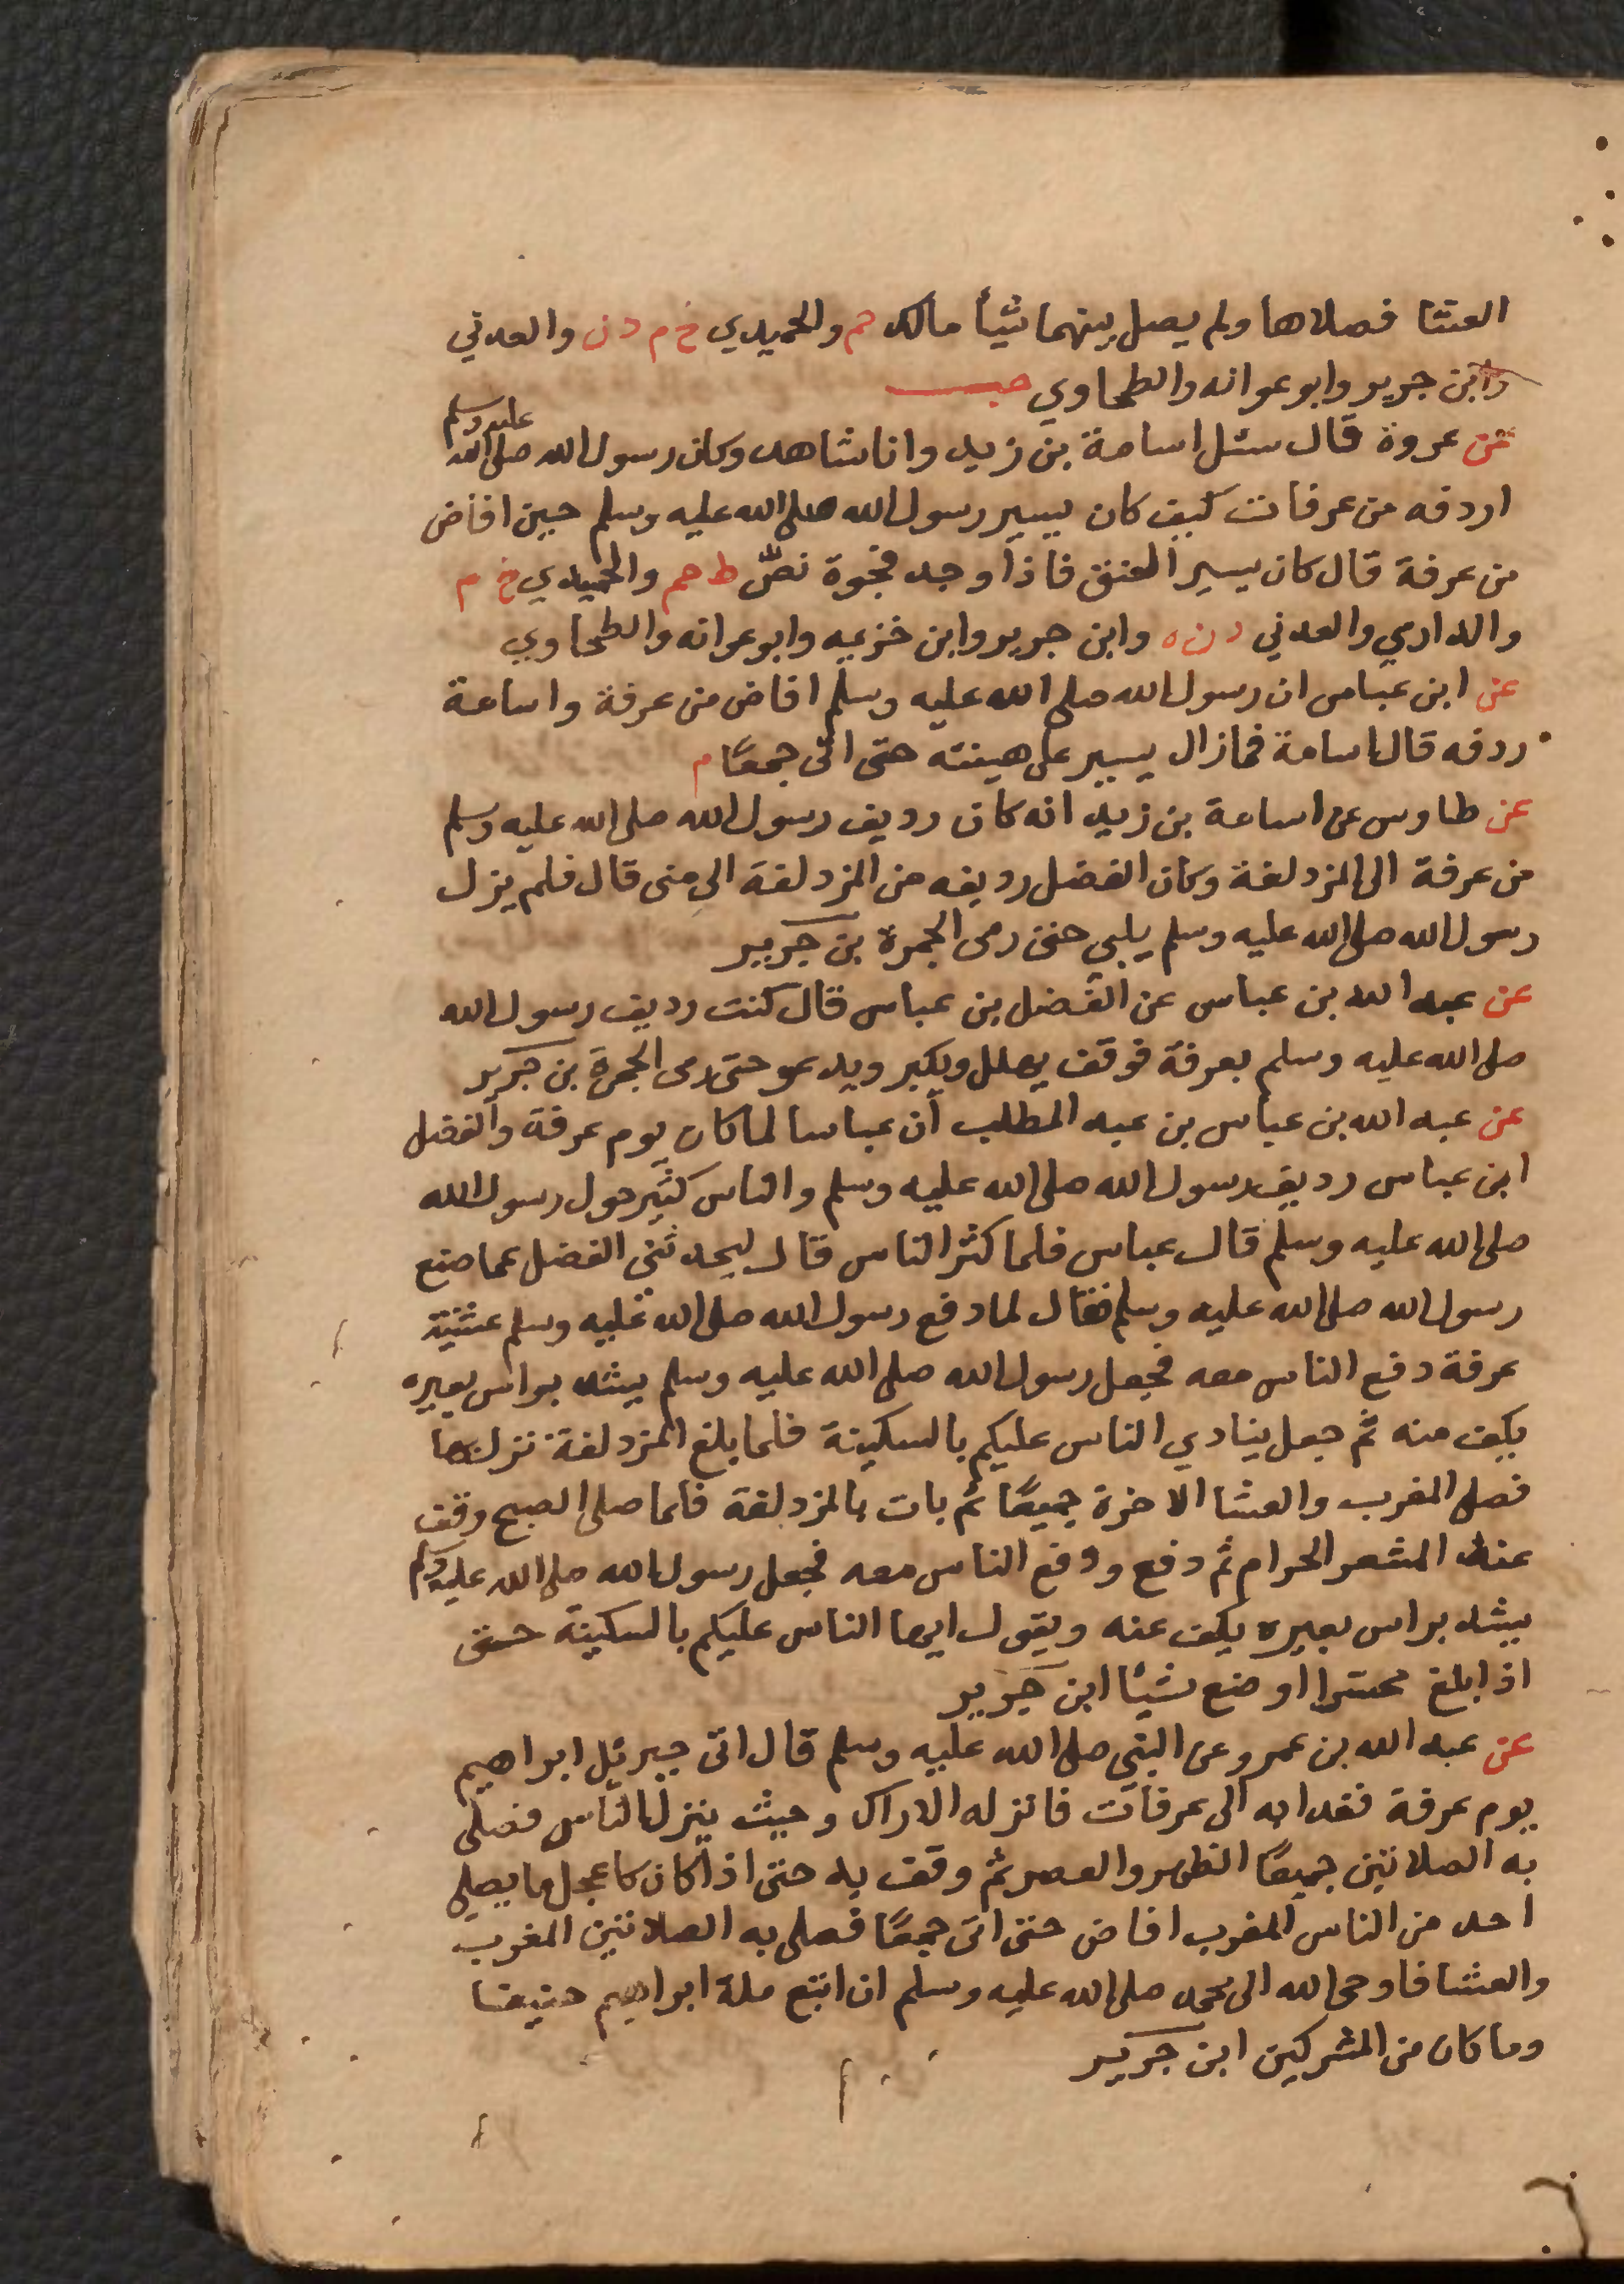 العشا فصلاها ولم يصل بينهما شيأ مالك حم والحميدي خ م د ن والعدني
وابن جرير وابو عوانه والطحاوي حب
عن عروة قال سئل اسامة بن زيد وانا شاهد وكان رسول الله صلى الله عليه وسلم
اردفه من عرفات كيف كان يسير رسول الله صلى الله عليه وسلم حين افاض
من عرفة قال كان يسير العنق فاذا وجد فجوة نصّ ط حم والحميدي خ م
والدارمي والعدني د ن ه وابن جرير وابن خزيمه وابو عوانه والطحاوي
عن ابن عباس ان رسول الله صلى الله عليه وسلم افاض من عرفة واسامة
ردفه قال اسامة فمازال يسير على هينته حتى اتى جمعًا م
عن طاوس عن اسامة بن زيد انه كان رديف رسول الله صلى الله عليه وسلم
من عرفة الى المزدلفة وكان الفضل رديفه من المزدلفة الى منى قال فلم يزل
رسول الله صلى الله عليه وسلم يلبي حتى رمى الجمرة بن جرير
عن عبد الله بن عباس عن الفضل بن عباس قال كنت رديف رسول الله
صلى الله عليه وسلم بعرفة فوقف يهلل ويكبر ويدعو حتى رمى الجمرة بن جرير
عن عبد الله بن عباس بن عبد المطلب أن عباسا لما كان يوم عرفة والفضل
ابن عباس رديف رسول الله صلى الله عليه وسلم والناس كثير حول رسول الله
صلى الله عليه وسلم قال عباس فلما كثر الناس قال ليحدثني الفضل عما صنع
رسول الله صلى الله عليه وسلم فقال لما دفع رسول الله صلى الله عليه وسلم عشية
عرفة دفع الناس معه فجعل رسول الله صلى الله عليه وسلم يشد براس بعيره
يكف منه ثم جعل ينادي الناس عليكم بالسكينة فلما بلغ المزدلفة نزل بها
فصلى المغرب والعشا الاخرة جميعًا ثم بات بالمزدلفة فلما صلى الصبح وقف
عند المشعر الحرام ثم دفع ودفع الناس معه فجعل رسول الله صلى الله عليه وسلم
يشد براس بعيره يكف عنه ويقول ايها الناس عليكم بالسكينة حتى
اذا بلغ محسرا اوضع شيئا ابن جرير
عن عبد الله بن عمرو عن النبي صلى الله عليه وسلم قال اتى جبرئيل ابراهيم
يوم عرفة فغدا به الى عرفات فانزله الاراك وحيث ينزل الناس فصلى
به الصلاتين جميعًا الظهر والعصر ثم وقف به حتى اذا كان كاعجل ما يصلي
احد من الناس المغرب افاض حتى اتى جمعًا فصلى به الصلاتين المغرب
والعشا فاوحى الله الى محمد صلى الله عليه وسلم ان اتبع ملة ابراهيم حنيفا
وما كان من المشركين ابن جرير